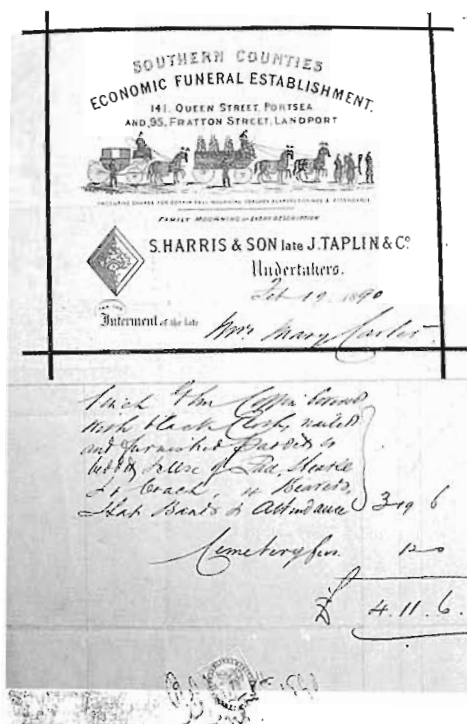 SOUTHERN COUNTIES
ECONOMIC FUNERAL ESTABLISHMENT.
141, QUEEN STREET, PORTSEA
AND, 95, FRATTON STREET, LANDPORT
FAMILY MOURNING OF EVERY DESCRIPTION
S. HARRIS & SON late J. TAPLIN & Co
Undertakers.
Feb 19. 1890
Interment of the late Mrs Mary Carter
1 inch Elm Coffin covered
with black Cloth, nailed
and furnished
Use of Hearse
Coach, Bearers,
Hat Bands & Attendance 3 19 6
Cemetery fees 12 0
£ 4. 11. 6.
1890